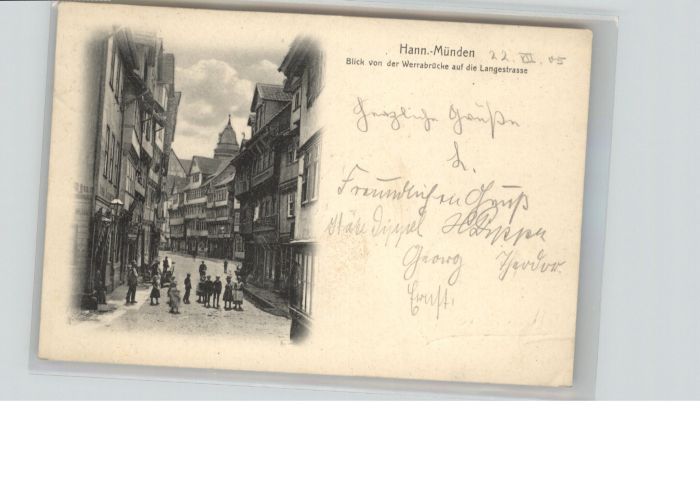 Hann.-Münden 22. VII. 05
Blick von der Werrabrücke auf die Langestrasse
Herzliche Grüße
Freundlichen Gruß
Käte Dippel H Dippel
Georg Theodor.
Ernst.